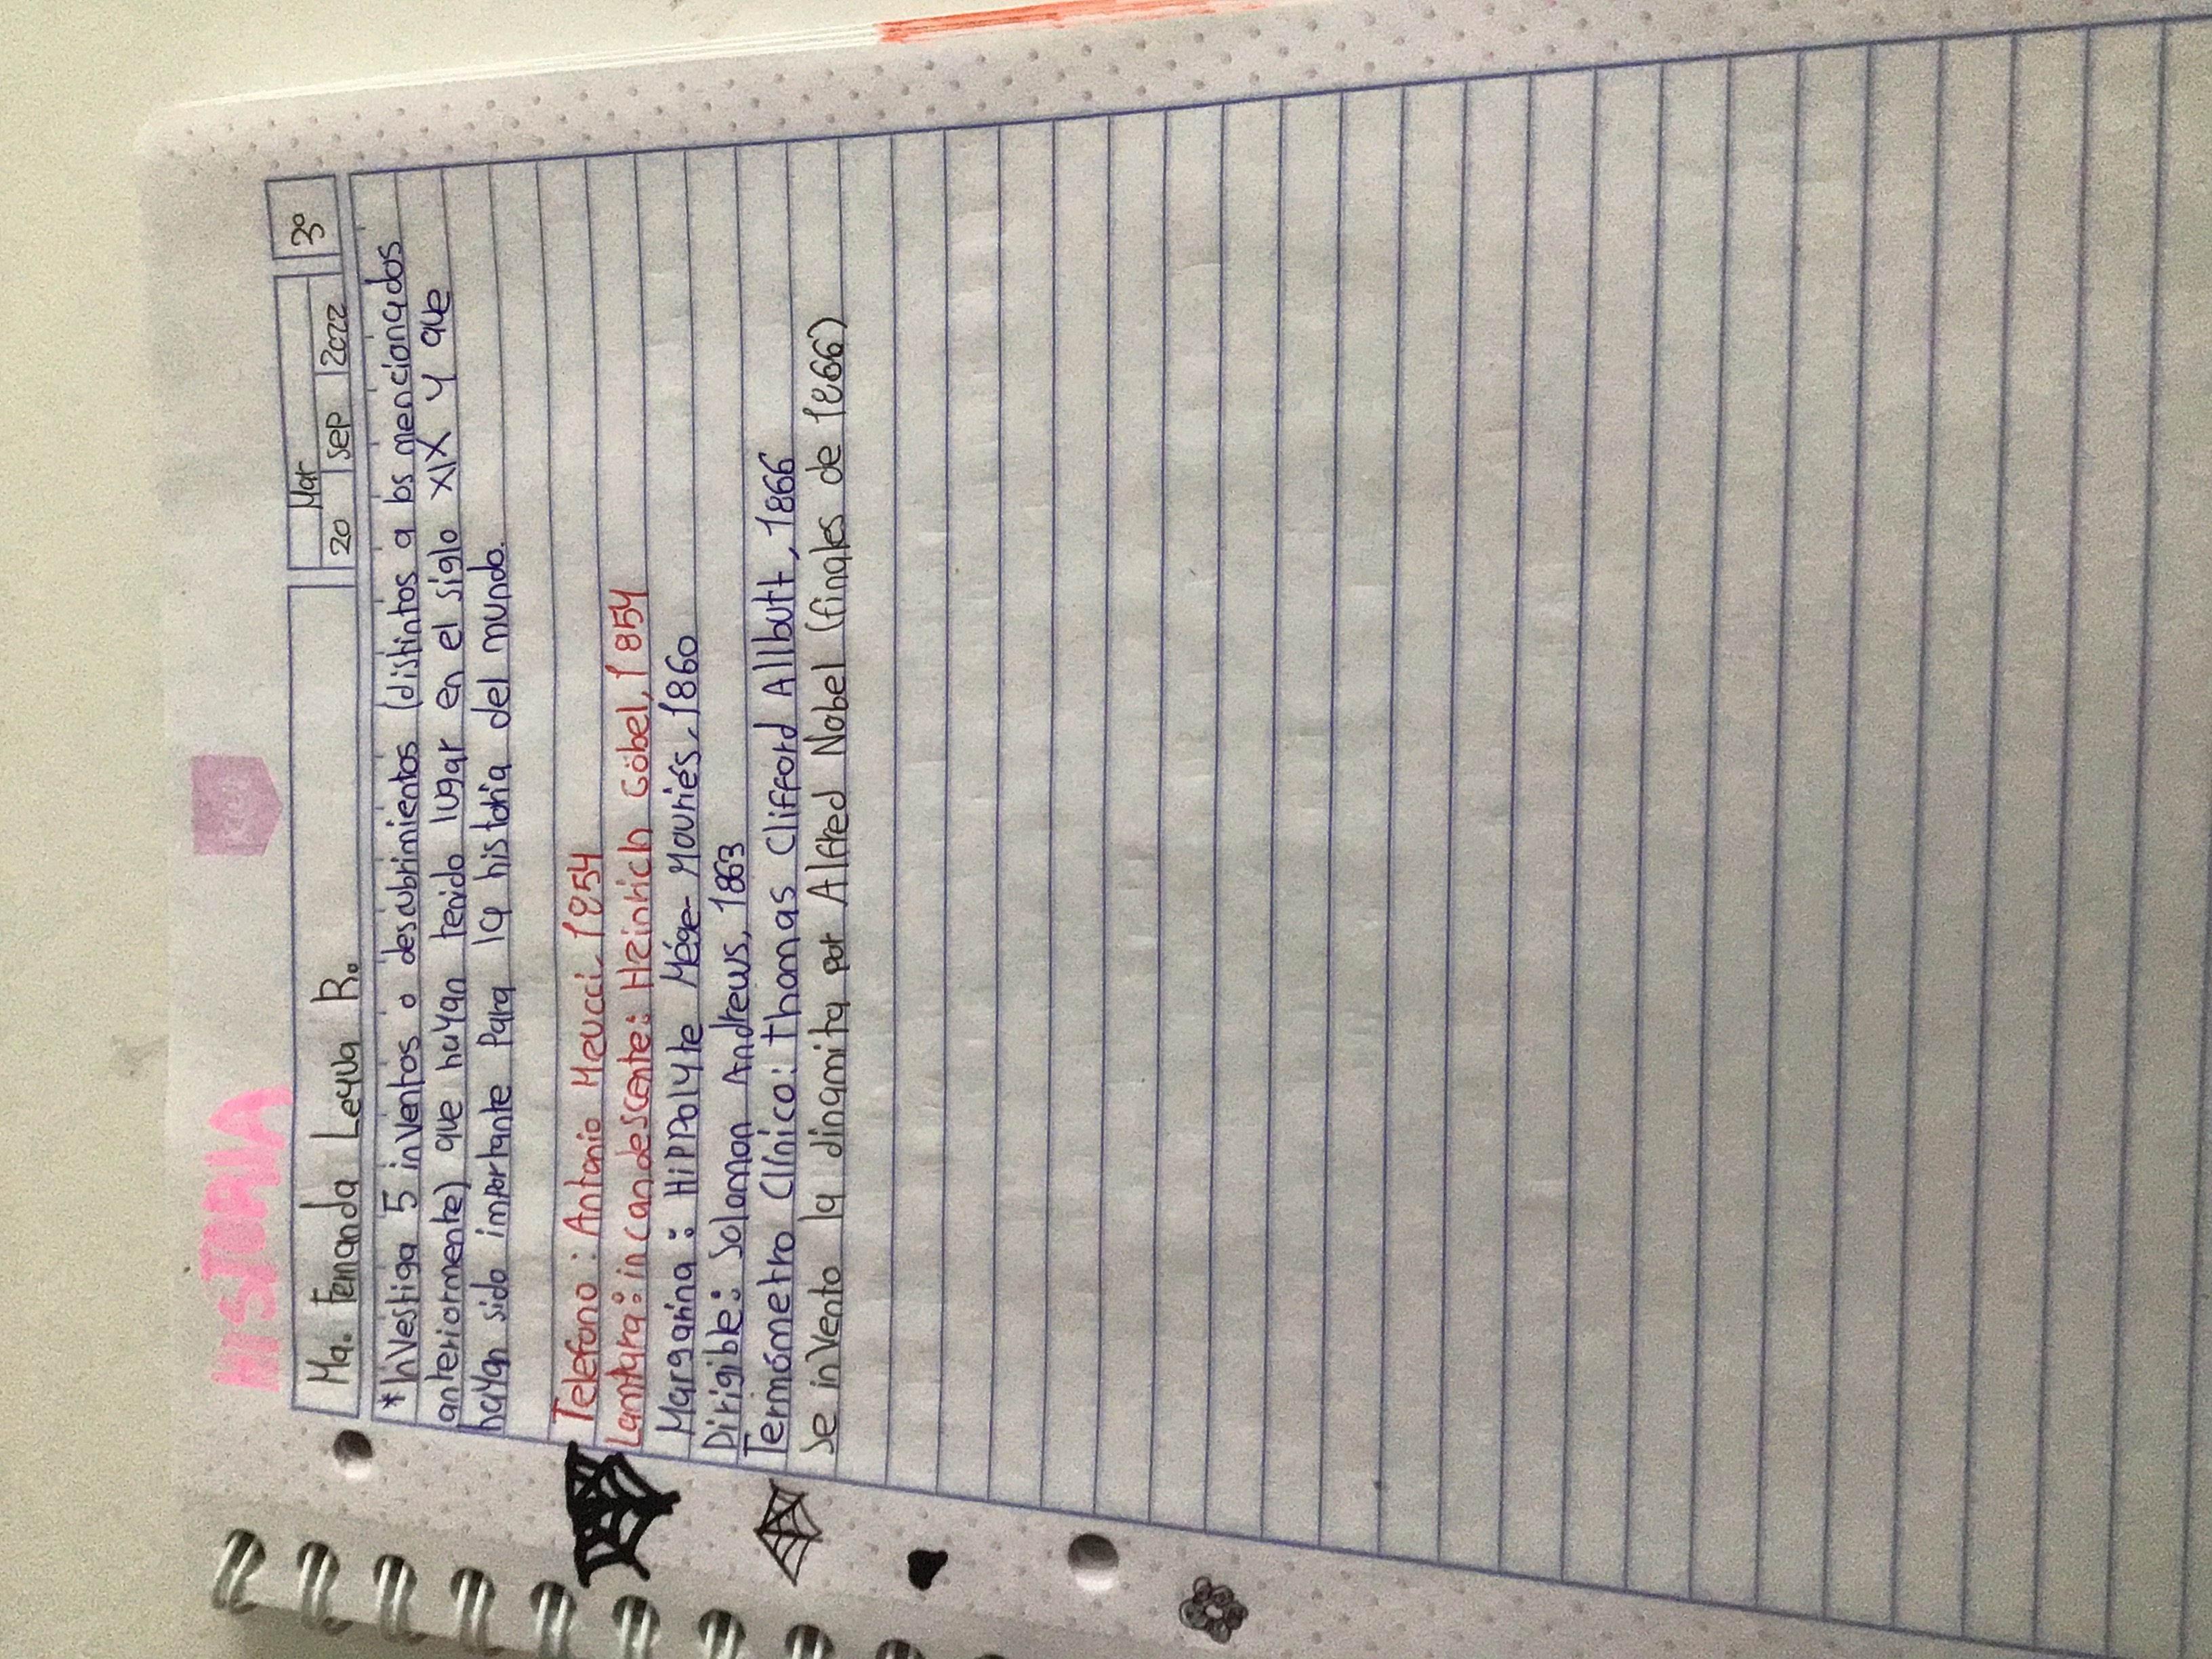 HISTORIA
Ma. Fernanda Leyva R.
Mar
20 sep 2022
3º
*Investiga 5 inventos o descubrimientos (distintos a los mencionados
anteriormente) que hayan tenido lugar en el siglo XIX y que
hayan sido importante para la historia del mundo.
Telefono: Antonio Meucci, 1854
Lamtara: incandescente: Heinrich Göbel, 1854
Margarina: Hippolyte Mége-Mouriés, 1860
Dirigible: Solomon Andrews, 1863
Termómetro Clínico: thomas Clifford Allbutt, 1866
Se invento la dinamita por Alfred Nobel (finales de 1866)